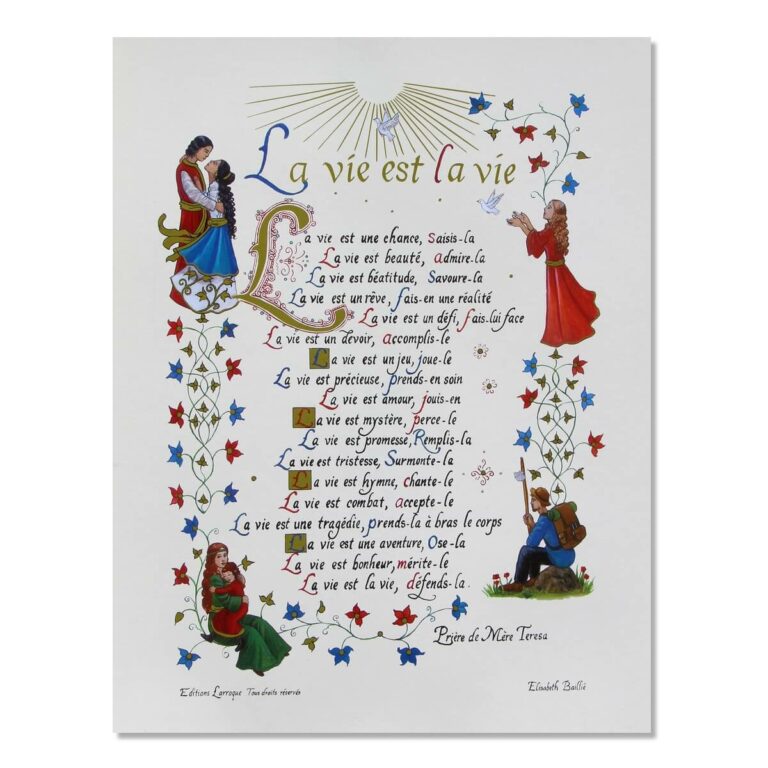 La vie est la vie
La vie est une chance, saisis-la
La vie est beauté, admire-la
La vie est béatitude, Savoure-la
La vie est un rêve, fais-en une réalité
La vie est un défi, fais-lui face
La vie est un devoir, accomplis-le
La vie est un jeu, joue-le
La vie est précieuse, prends-en soin
La vie est amour, jouis-en
La vie est mystère, perce-le
La vie est promesse, Remplis-la
La vie est tristesse, Surmonte-la
La vie est hymne, chante-le
La vie est combat, accepte-le
La vie est une tragédie, prends-la à bras le corps
La vie est une aventure, Ose-la
La vie est bonheur, mérite-le
La vie est la vie, défends-la.
Prière de Mère Teresa
Editions Larroque Tous droits réservés
Elisabeth Baillié